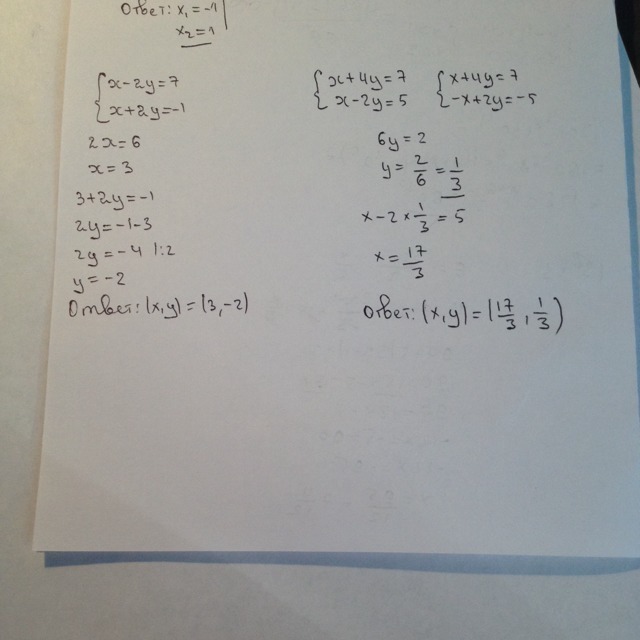 Ответ: x₁ = -1
x₂ = 1
{ x - 2y = 7
x + 2y = -1
2x = 6
x = 3
3 + 2y = -1
2y = -1 - 3
2y = -4 |:2
y = -2
Ответ: (x,y) = (3,-2)
{ x + 4y = 7
x - 2y = 5
{ x + 4y = 7
-x + 2y = -5
6y = 2
y = 2/6 = 1/3
x - 2 × 1/3 = 5
x = 17/3
Ответ: (x,y) = (17/3, 1/3)